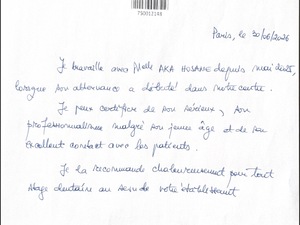 750012148
Paris, le 30/06/2026
Je travaille avec Melle AKA HOSANE depuis mai dernier,
lorsque son alternance a débuté dans notre centre.
Je peux certifier de son sérieux, son
professionnalisme malgré son jeune âge et de son
excellent contact avec les patients.
Je la recommande chaleureusement pour tout
stage dentaire au sein de votre établissement